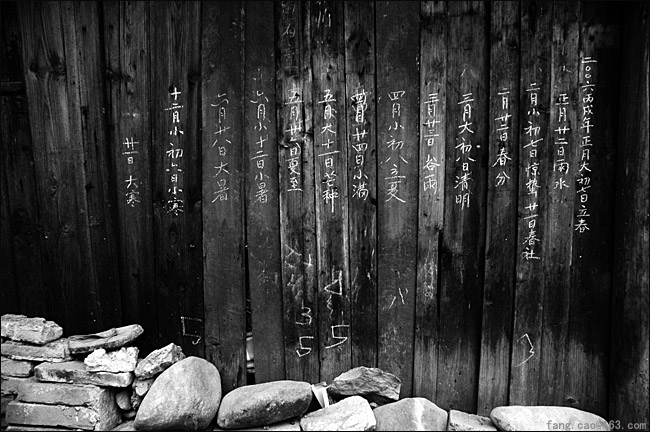 二〇〇六丙戌年正月大初七日立春
正月廿二日雨水
二月小初七日惊蛰 廿一日春社
二月廿二日春分
三月大初八日清明
三月廿三日谷雨
四月小初八立夏
四月廿四日小满
五月大十一日芒种
五月廿六日夏至
六月小十二日小暑
六月廿八日大暑
十二月小初八日小寒
廿一日大寒
3
5
5
5
3
fang.cao@163.com